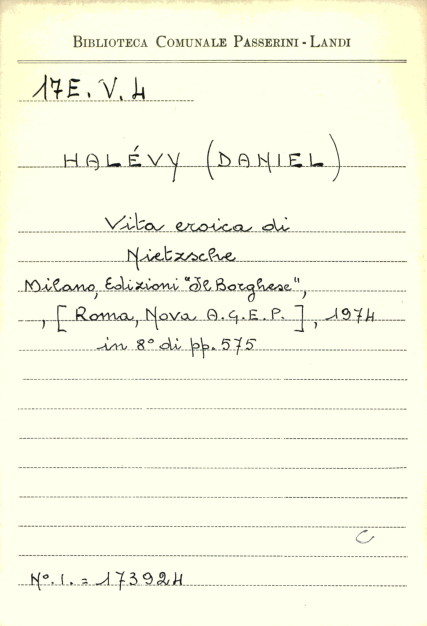 BIBLIOTECA COMUNALE PASSERINI - LANDI
17E. V. 4
HALÉVY (DANIEL)
Vita eroica di
Nietzsche
Milano, Edizioni "Il Borghese",
, [ Roma, Nova A.G.E.P. ] , 1974
in 8° di pp. 575
C
N°. I. = 173924